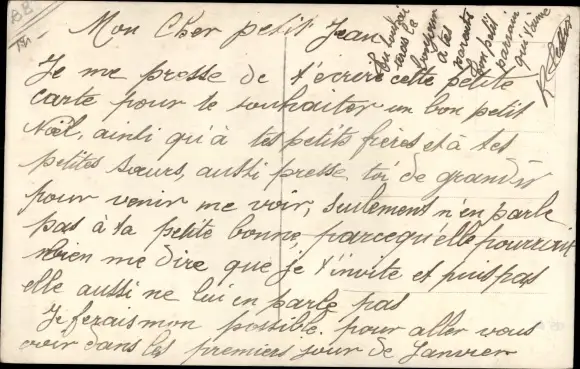 Mon Cher petit Jean
Je me presse de t'écrire cette petite
carte pour te souhaiter un bon petit
Noël, ainsi qu'à tes petits frères et à tes
petites sœurs, aussi presse toi de grandir
pour venir me voir, seulement n'en parle
pas à ta petite bonne, parcequ'elle pourrait
bien me dire que je t'invite et puis pas
elle aussi ne lui en parle pas
Je ferais mon possible. pour aller vous
voir dans les premiers jour de Janvier
bonjour
à tes
parents
ton petit
parrain
qui t'aime
R